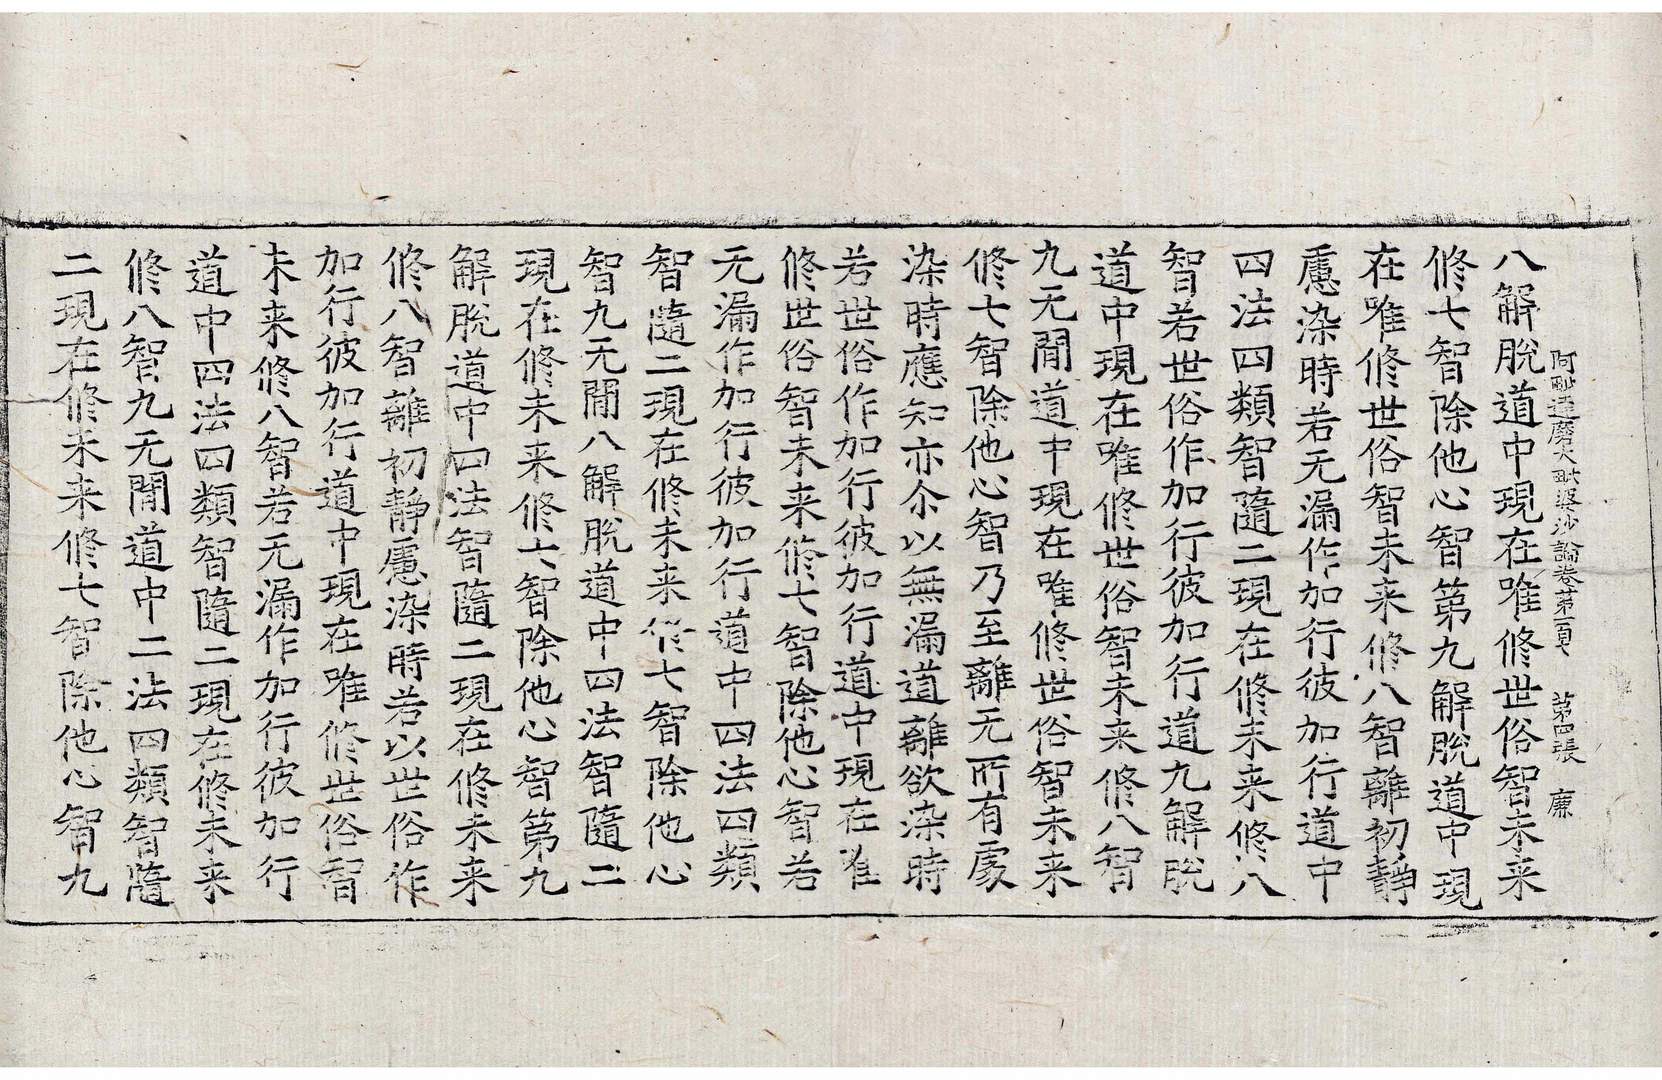 阿毗達磨大毗婆沙論卷苐一百七 苐四張 廉
八解脫道中現在唯修世俗智未来
修七智除他心智第九解脫道中現
在唯修世俗智未来修八智離初靜
慮染時若无漏作加行彼加行道中
四法四類智隨二現在修未来修八
智若世俗作加行彼加行道九解脫
道中現在唯修世俗智未来修八智
九无閒道中現在唯修世俗智未来
修七智除他心智乃至離无所有處
染時應知亦尒以無漏道離欲染時
若世俗作加行彼加行道中現在唯
修世俗智未来修七智除他心智若
无漏作加行彼加行道中四法四類
智隨二現在修未来修七智除他心
智九无閒八解脫道中四法智隨二
現在修未来修七智除他心智第九
解脫道中四法智隨二現在修未来
修八智離初靜慮染時若以世俗作
加行彼加行道中現在唯修世俗智
未来修八智若无漏作加行彼加行
道中四法四類智隨二現在修未来
修八智九无閒道中二法四類智隨
二現在修未来修七智除他心智九